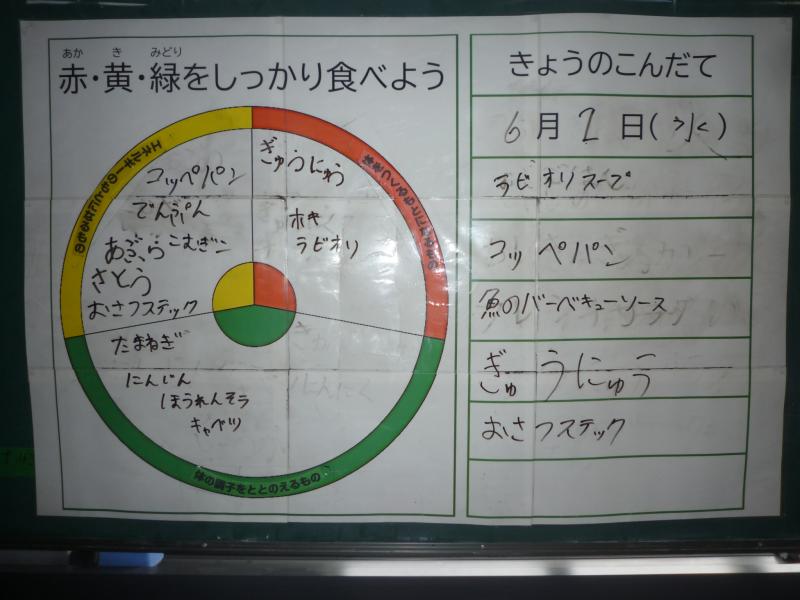 あか き みどり
赤・黄・緑をしっかり食べよう
エネルギーのもとになるもの
体をつくるもとになるもの
コッペパン
でんぷん
あぶら こむぎコ
さとう
おさつスティック
ぎゅうにゅう
ホキ
ラビオリ
たまねぎ
にんじん
ほうれんそう
キャベツ
体の調子をととのえるもの
きょうのこんだて
6月2日(水)
ラビオリスープ
コッペパン
魚のバーベキューソース
ぎゅうにゅう
おさつスティック